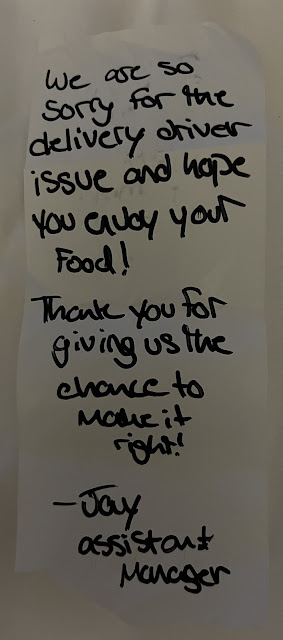 We are so
sorry for the
delivery driver
issue and hope
you enjoy your
Food!
Thank you for
giving us the
chance to
make it
right!
-Jay
assistant
Manager